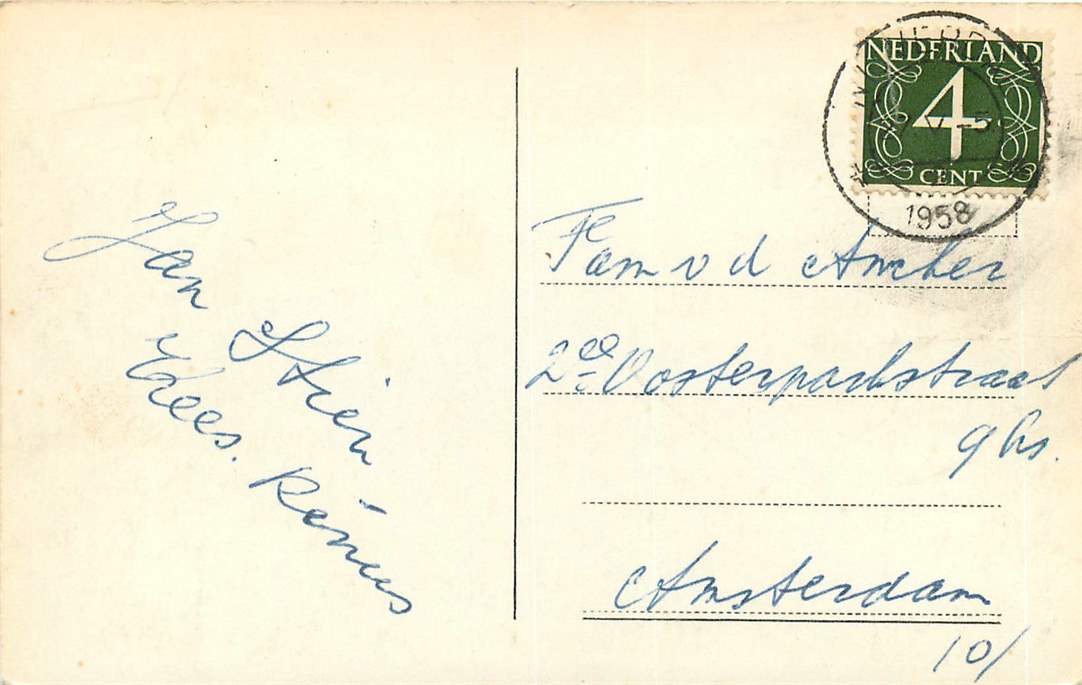 NEDERLAND
4
CENT
1958
Jan Stien
Kees. Rinus
Fam v d Ancker
2e Oosterparkstraat
9 hs.
Amsterdam
10/